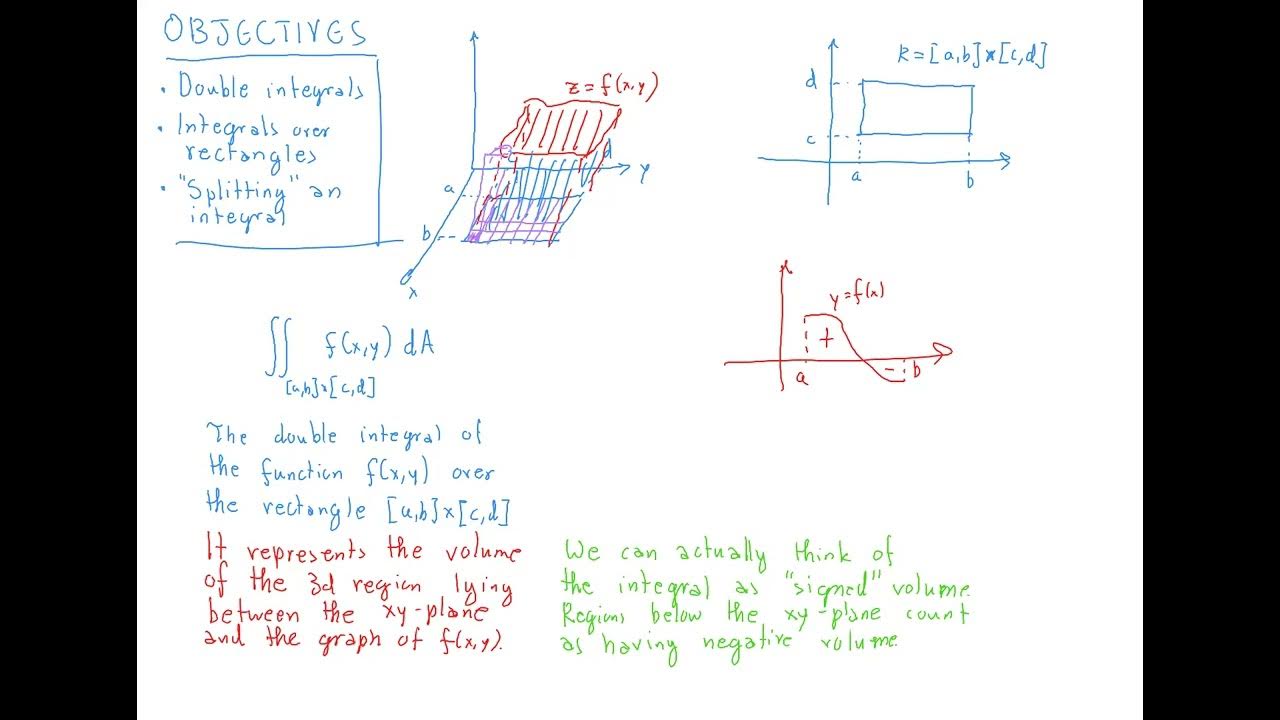 OBJECTIVES
• Double integrals
• Integrals over
rectangles
• "Splitting" an
integral
z = f(x,y)
c
d
y
a
b
x
R = [a,b]×[c,d]
d
c
a
b
y = f(x)
+
-
a
b
∬ f(x,y) dA
[a,b]×[c,d]
The double integral of
the function f(x,y) over
the rectangle [a,b]×[c,d]
It represents the volume
of the 3d region lying
between the xy-plane
and the graph of f(x,y).
We can actually think of
the integral as "signed" volume.
Regions below the xy-plane count
as having negative volume.